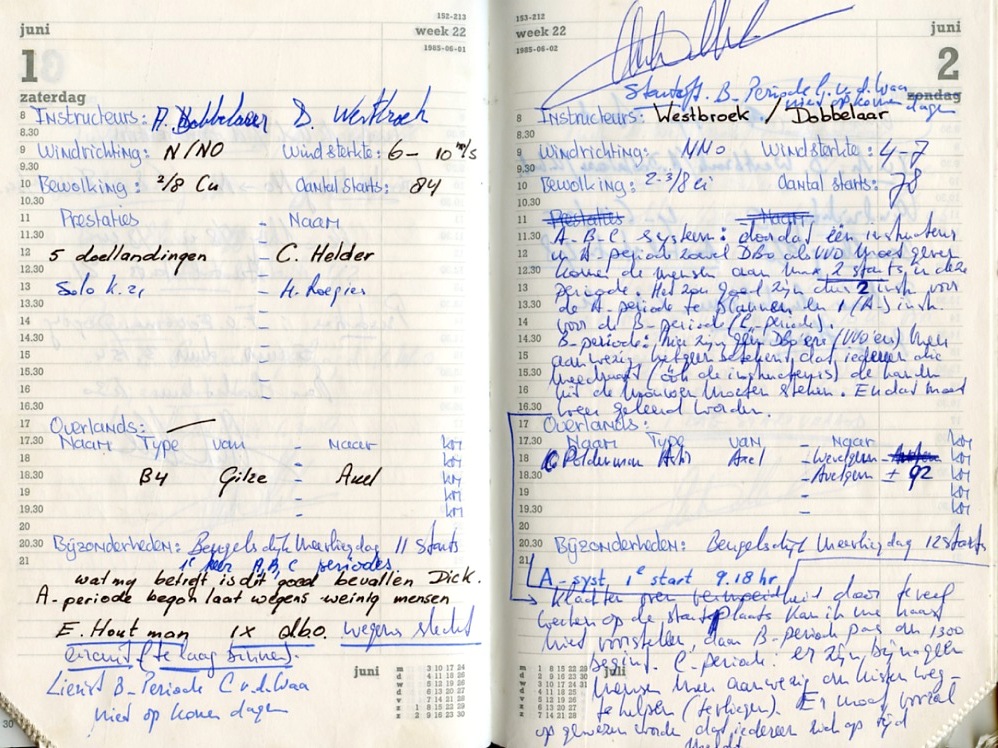 juni
152-213
week 22
1985-06-01
1
zaterdag
8 Instructeurs: A. Dobbelaar D. Westbroek
8.30
9 Windrichting: N/NO Windsterkte: 6 - 10 m/s
9.30
10 Bewolking: 2/8 Cu Aantal starts: 84
10.30
11 Prestaties - Naam
11.30
12 5 doellandingen - C. Helder
12.30
13 Solo K.21 - H. Roegies
13.30
14
14.30
15
15.30
16
16.30
17 Overlands: —
17.30 Naam Type van - Naar km
18 km
18.30 B4 Gilze - Axel km
19 km
19.30 km
20
20.30 Bijzonderheden: Beugelsdijk Maarliegdag 11 starts
21 1e keer A, B, C periodes
wat mij betreft is dit goed bevallen Dick.
A-periode begon laat wegens weinig mensen
E. Houtman 1x dbo. wegens slecht
circuit (te laag binnen).
Lierist B-Periode C v.d. Waa
niet op komen dagen
juni
m 3 10 17 24
d 4 11 18 25
w 5 12 19 26
d 6 13 20 27
v 7 14 21 28
z 1 8 15 22 29
z 2 9 16 23 30
153-212
week 22
1985-06-02
juni
2
zondag
Startoff. B. Periode G. v.d. Waa
niet op komen dagen
8 Instructeurs: Westbroek / Dobbelaar
8.30
9 Windrichting: NNO Windsterkte: 4-7
9.30
10 Bewolking: 2-3/8 ci Aantal starts: 78
10.30
11 Prestaties - Naam
11.30 A-B-C systeem: doordat één instructeur
12 in A periode zowel Dbo als VVO moet geven
12.30 komen de mensen aan max 2 starts, in deze
13 periode. Het zou goed zijn dus 2 instr. voor
13.30 de A-periode te plannen en 1 (A-) instr.
14 voor de B-periode (C-periode).
14.30 B-periode: hier zijn geen Dbo'ers (VVO'ers) meer
15 aanwezig hetgeen betekent dat iedereen die
15.30 meedraait (óók de instructeurs) de handen
16 uit de mouwen moeten steken. En dat moet
16.30 weer geleerd worden.
17 Overlands:
17.30 Naam Type van - Naar km
18 Polderman Astir Axel - Wevelgem km
18.30 - Avelgem ± 92 km
19 - km
19.30 - km
20
20.30 Bijzonderheden: Beugelsdijk Maarliegdag 12 starts
21
A-syst, 1e start 9.18 hr
Klachten over vermoeidheid door teveel
werken op de startplaats kan ik me haast
niet voorstellen, daar B-periode pas om 1300
begint. C-periode: er zijn bijna geen
mensen meer aanwezig om kisten weg-
te helpen (terliegen). Er moet vooral
op gewezen worden dat iedereen wel op tijd
juli
m 1 8 15 22 29
d 2 9 16 23 30
w 3 10 17 24 31